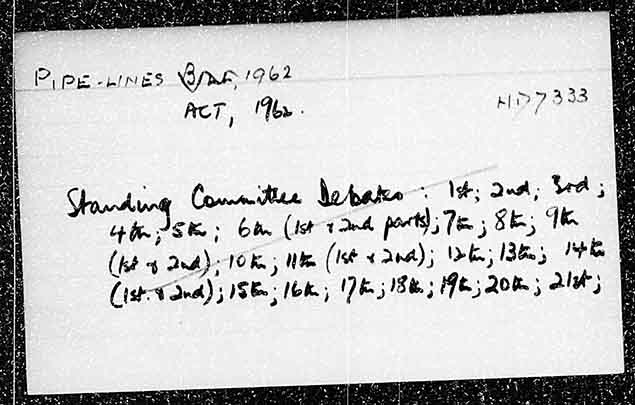 PIPE-LINES BILL, 1962
ACT, 1962.
HD7333
Standing Committee Debates: 1st; 2nd; 3rd;
4th; 5th; 6th (1st & 2nd parts); 7th; 8th; 9th
(1st & 2nd); 10th; 11th (1st & 2nd); 12th; 13th; 14th
(1st & 2nd); 15th; 16th; 17th; 18th; 19th; 20th; 21st;